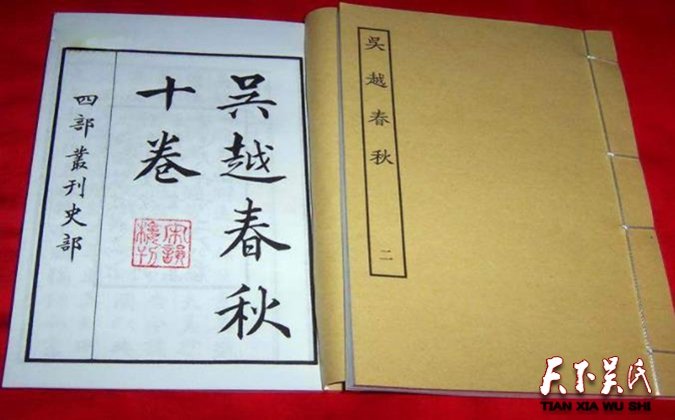 吳越春秋
十卷
四部叢刊史部
吳越春秋
二
天下吴氏
TIAN XIA WU SHI